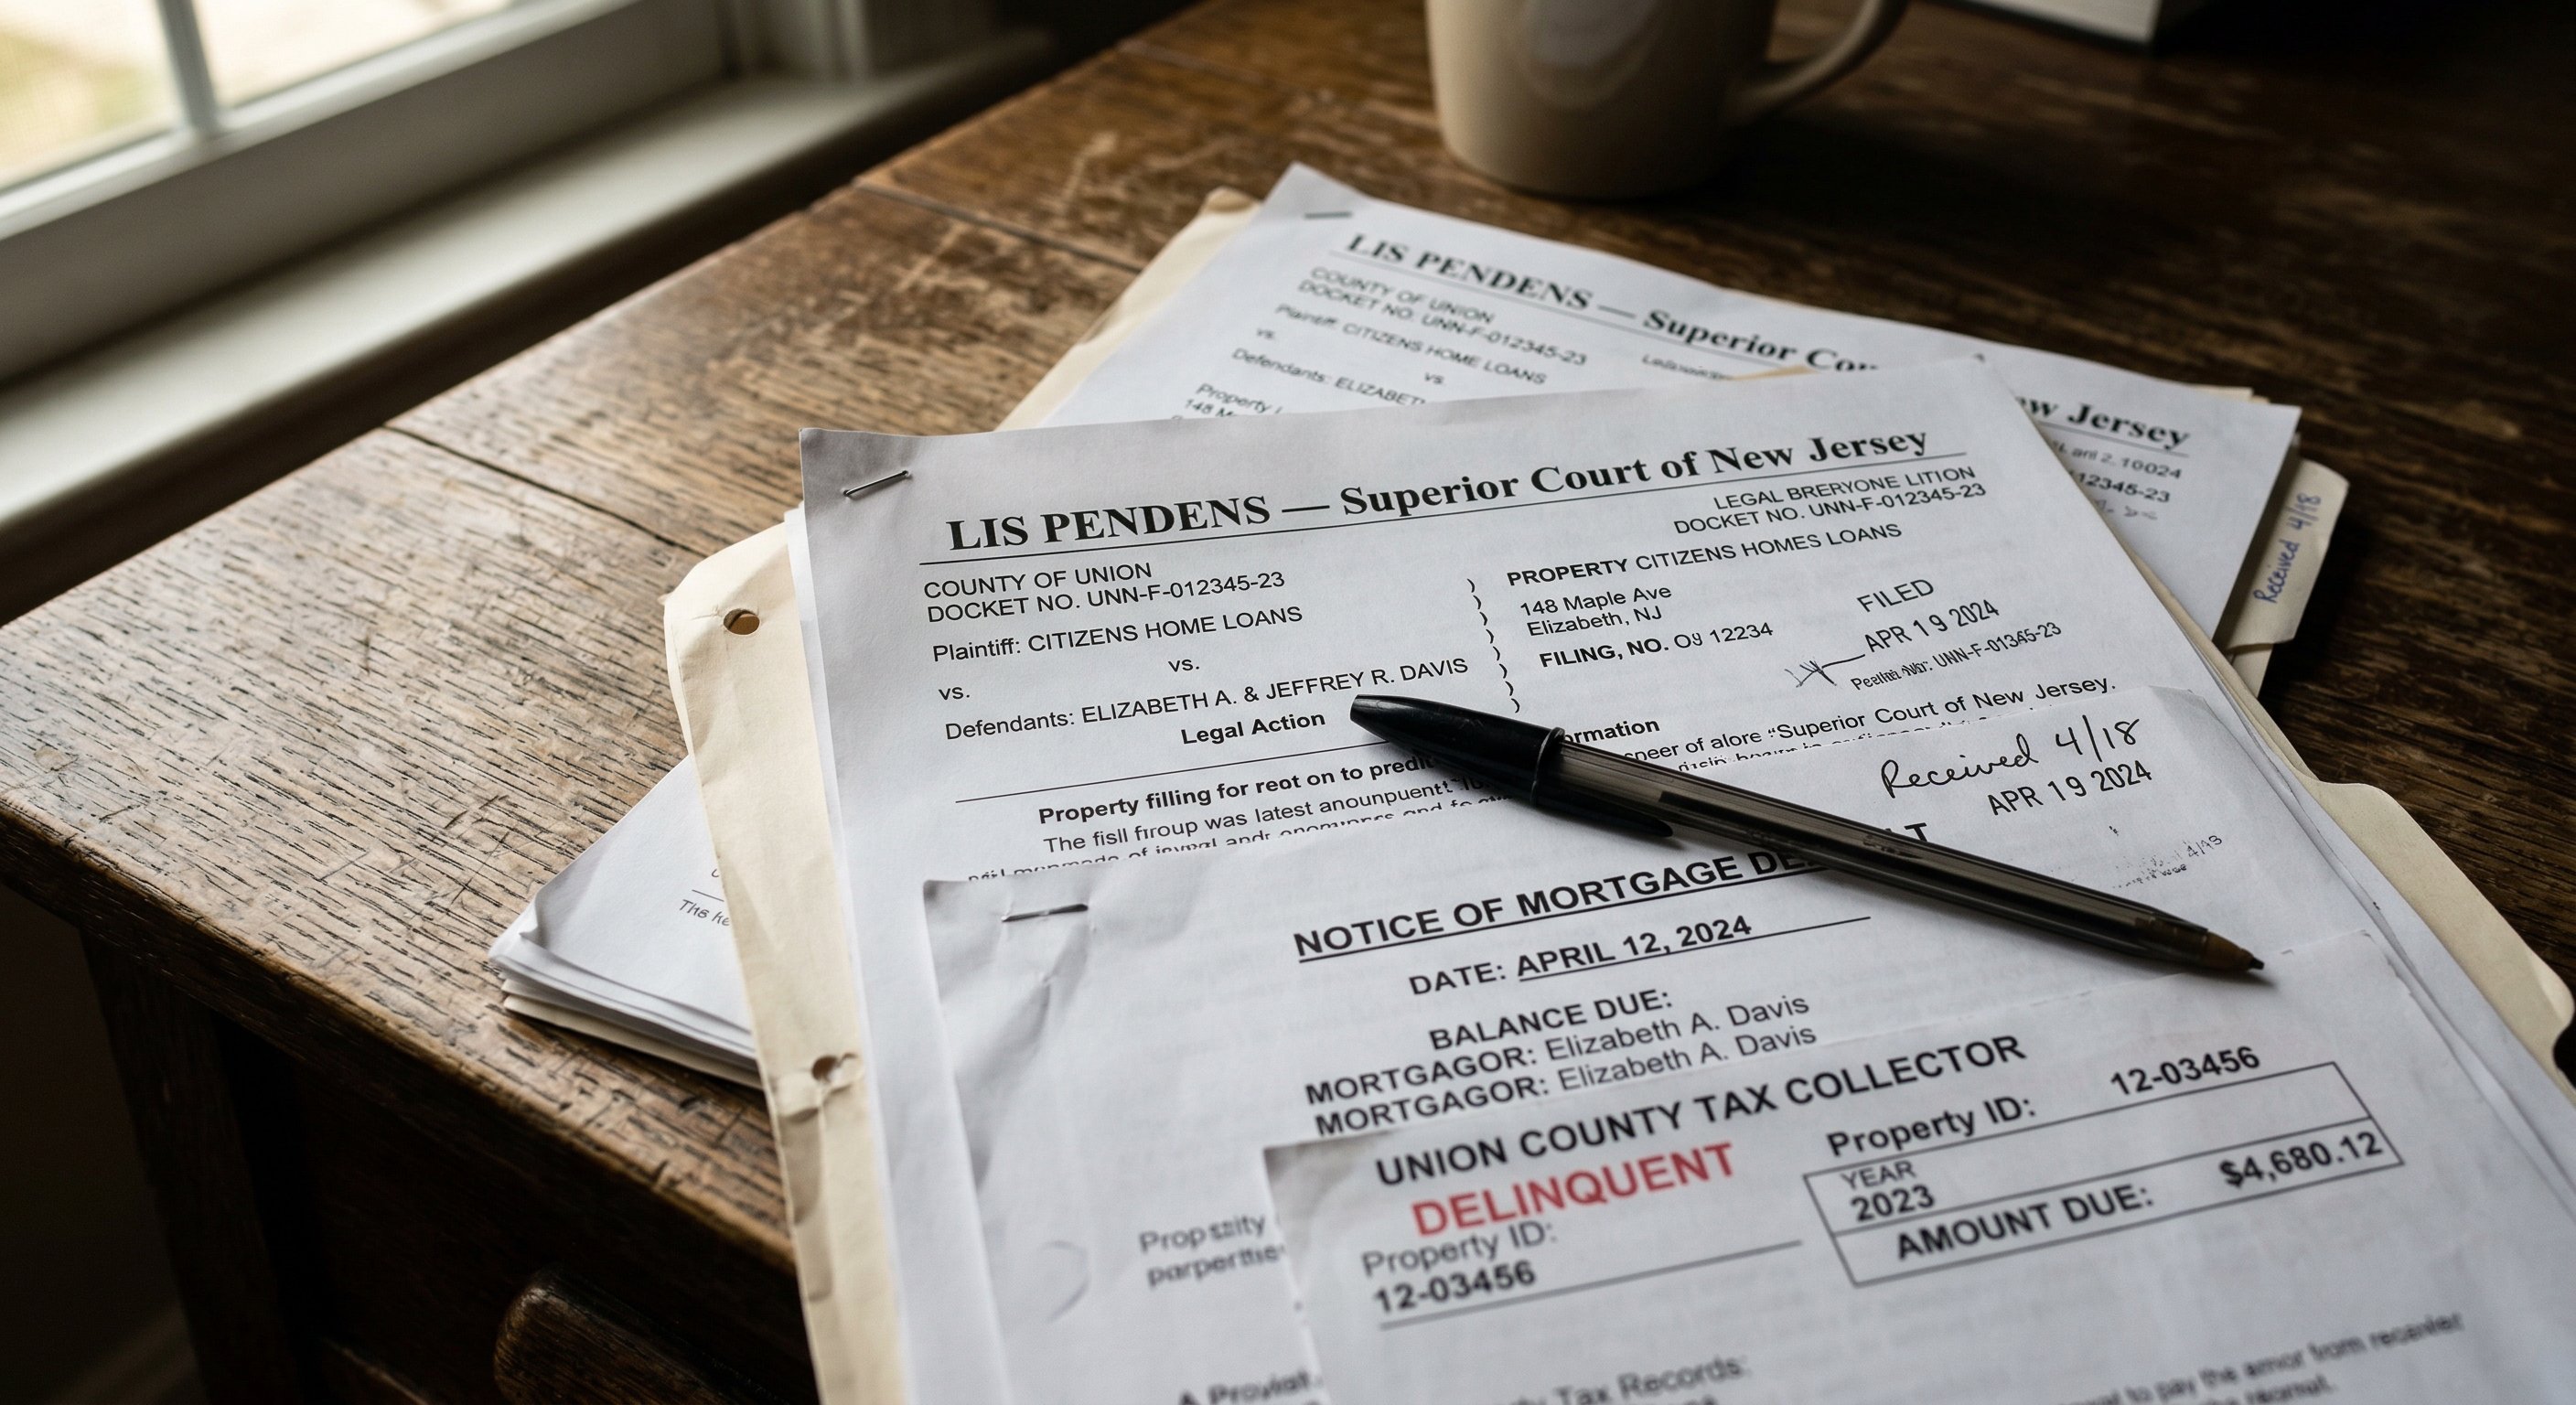 LIS PENDENS — Superior Cou
COUNTY OF UNION
DOCKET NO. UNN-F-012345-23
Plaintiff: CITIZENS HOME LOANS
vs.
vs
Defendants: ELIZABET
Property
148 M
ew Jersey
12345-23
Received 4/18
LIS PENDENS — Superior Court of New Jersey
COUNTY OF UNION
DOCKET NO. UNN-F-012345-23
Plaintiff: CITIZENS HOME LOANS
vs.
vs.
Defendants: ELIZABETH A. & JEFFREY R. DAVIS
Legal Action
LEGAL BRERYONE LITION
DOCKET NO. UNN-F-012345-23
PROPERTY CITIZENS HOMES LOANS
148 Maple Ave
Elizabeth, NJ
FILING, NO. 12234
FILED
APR 19 2024
UNN-F-01345-23
ormation
speer of alore “Superior Court of New Jersey.
Property filling for reot on to predit
The fisll firoup was latest anounpuentt
Received 4/18
APR 19 2024
NOTICE OF MORTGAGE DE LT
DATE: APRIL 12, 2024
BALANCE DUE:
MORTGAGOR: Elizabeth A. Davis
MORTGAGOR: Elizabeth A. Davis
UNION COUNTY TAX COLLECTOR
DELINQUENT
Property ID:
12-03456
Property ID: 12-03456
YEAR
2023
AMOUNT DUE: $4,680.12
Tax Records:
to pay the amor from